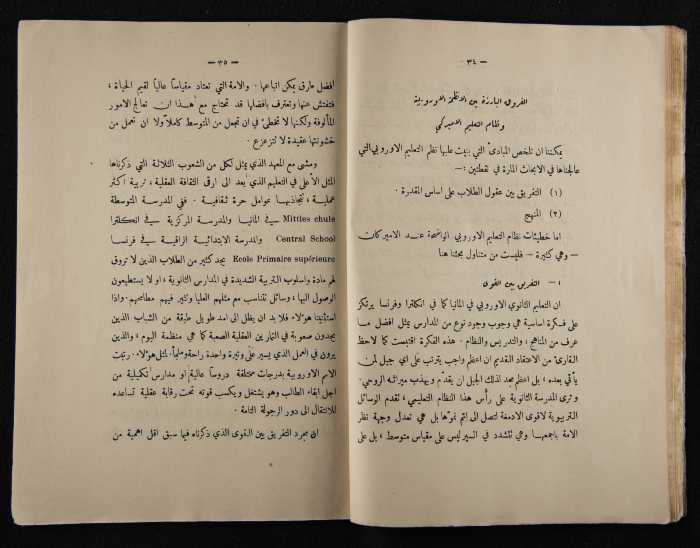 — ٣٤ —
الفروق البارزة بين الانظمة الاوروبية
ونظام التعليم الاميركي
يمكننا ان نلخص المبادئ التي بنيت عليها نظم التعليم الاوروبي التي
عالجناها في الابحاث المارة في نقطتين :—
(١) التفريق بين عقول الطلاب على اساس المقدرة .
(٢) المنهج
اما خطيئات نظام التعليم الاوروبي الواضحة عند الاميركان
— وهي كثيرة — فليست من متناول بحثنا هنا
١ — التفريق بين القوى
ان التعليم الثانوي الاوروبي في المانيا كما في انكلترا وفرنسا يرتكز
على فكرة اساسية هي وجوب وجود نوع من المدارس يمثل افضل ما
عرف من المناهج ، والتدريس والنظام . هذه الفكرة اقتبست كما لاحظ
القارئ من الاعتقاد القديم ان اعظم واجب يترتب على اي جيل لمن
يأتي بعده ، بل اعظم مجد لذلك الجيل ان يقدم ويهذب ميراثه الروحي.
وترى المدرسة الثانوية على رأس هذا النظام التعليمي ، تقدم الوسائل
التربيوية لاقوى الادمغة لتصل الى اتم نموها بل هي تعدل وجهة نظر
الامة باجمعها وهي تتشدد في السير ليس على مقياس متوسط ، بل على
— ٣٥ —
افضل عارق يمكن اتباعها . والامة التي تعتاد مقياساً عالياً لقيم الحياة ،
فتفتش عنها وتعترف بافضلها قد تحتاج مع هذا ان تعالج الامور
المألوفة ولكنها لا تخطئ في ان تجعل من المتوسط كاملاً ولا ان تعمل من
خشونتها عقيدة لا تتزعزع .
ومشى مع المعهد الذي يمثل لكل من الشعوب الثلاثة التي ذكرناها
المثل الاعلى في التعليم الذي يعد الى ارقى الثقافة العقلية ، تربية اكثر
عملية ، تتجاذبها عوامل حرة ثقافية . ففي المدرسة المتوسطة
Mittles chule في المانيا والمدرسة المركزية في انكلترا
Central School والمدرسة الابتدائية الراقية في فرنسا
Ecole Primaire supérieure يجد كثير من الطلاب الذين لا تروق
لهم مادة واسلوب التربية الشديدة في المدارس الثانوية ، او لا يستطيعون
الوصول اليها ، وسائل تتناسب مع مثلهم العليا وتثير فيهم مطامحهم . واذا
استثنينا هؤلاء فلا بد ان يظل الى امد طويل طبقة من الشباب الذين
يجدون صعوبة في التمارين العقلية الصعبة كما هي منظمة اليوم ، والذين
يرون في العمل الذي يسير على وتيرة واحدة راحة وملجأ. لمثل هؤلاء . رتبت
الامم الاوروبية بدرجات مختلفة دروساً عالية او مدارس تكميلية من
اجل ابقاء الطالب وهو يشتغل ويكسب قوته تحت رقابة عقلية تساعده
للانتقال الى دور الرجولة التامة .
ان مجرد التفريق بين القوى الذي ذكرناه فيما سبق اقل اهمية من